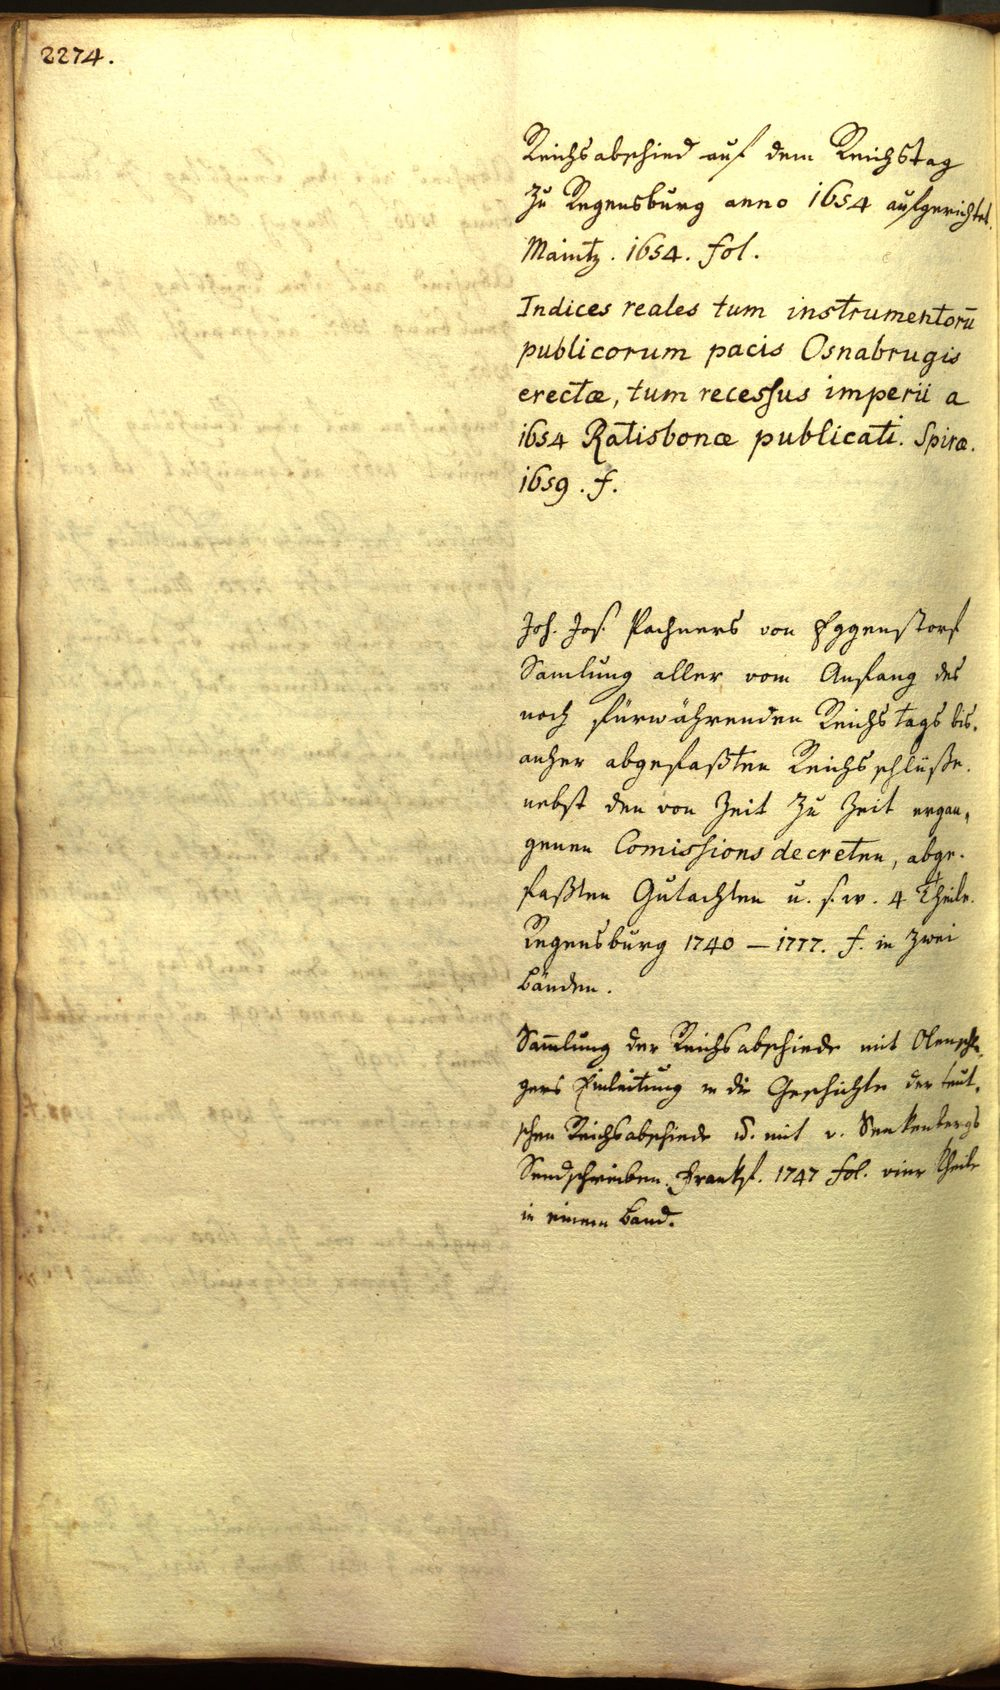 2274.
Reichsabschied auf dem Reichstag
zu Regensburg anno 1654 aufgerichtet.
Maintz. 1654. fol.
Indices reales tum instrumentorū
publicorum pacis Osnabrugis
erectæ, tum recessus imperii a
1654 Ratisbonæ publicati. Spiræ.
1659. f.
Joh. Jos. Pachners von Eggenstorf
Samlung aller vom Anfang des
noch fürwährenden Reichstags bis-
anher abgefaßten Reichsschlüße.
nebst den von Zeit zu Zeit ergan-
genen Comissionsdecreten, abge-
faßten Gutachten u. s. w. 4 Theile.
Regensburg 1740 — 1777. f. in zwei
Bänden.
Sam̄lung der Reichsabschiede mit Olenschla-
gers Einleitung in die Geschichte der teut-
schen Reichsabschiede u. mit v. Senkenbergs
Sendschreiben. Frankf. 1747 fol. vier Theile
in einem Band.